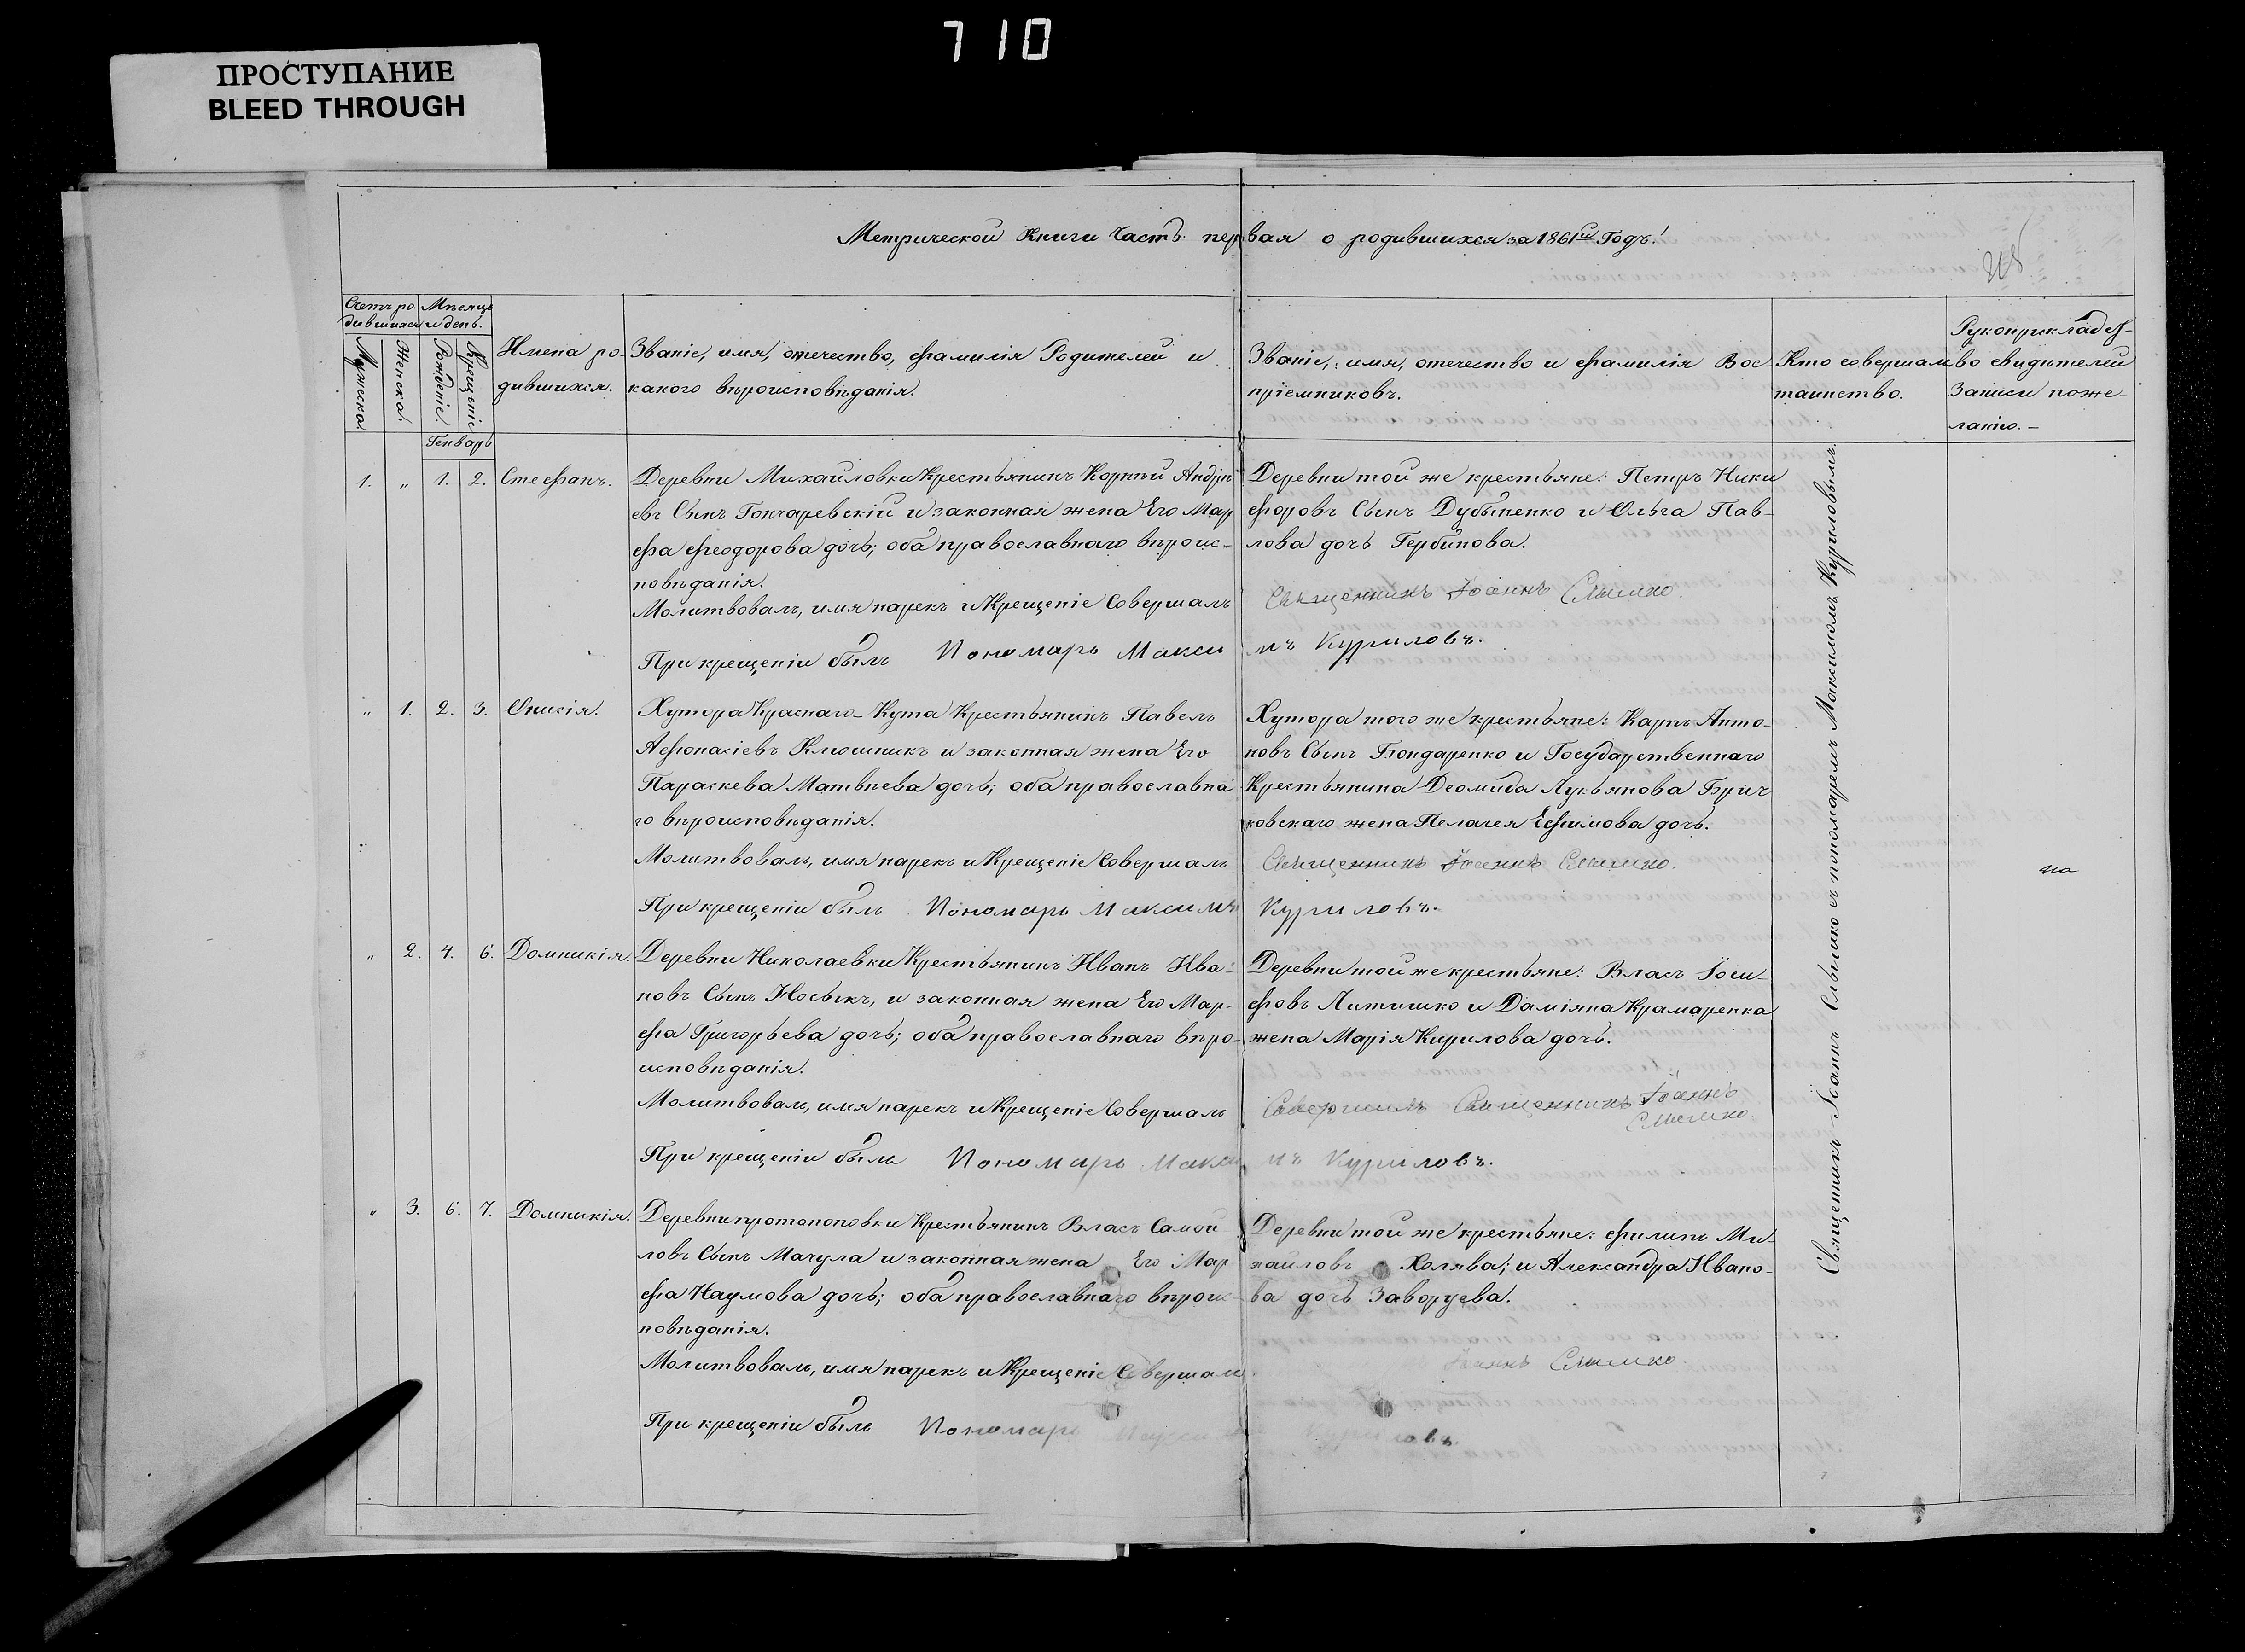 710
ПРОСТУПАНИЕ
BLEED THROUGH
Метрической Книги Часть первая о родившихся за 1861й Годъ.
Счетъ ро-
дившихся
Мужеска.
Женска.
Мѣсяцъ
и день.
Рожденіе.
Крещеніе
Имена ро-
дившихся.
Званіе, имя, отечество, фамилія Родителей и
какого вѣроисповѣданія.
Званіе, имя, отечество и фамилія Вос-
пріемниковъ.
Кто совершалъ
таинство.
Рукоприкладст-
во свидѣтелей
Записи по же-
ланію.
Генварь
1. „ 1. 2. Стефанъ.
Деревни Михайловки Крестьянинъ Корнѣй Андрѣ
евъ Сынъ Гончаревскій и законная жена Его Мар
фа Феодорова дочь; оба православнаго вѣроис-
повѣданія.
Молитвовалъ, имя нарекъ и Крещеніе Совершалъ
При крещеніи былъ Пономарь Макси
Деревни той же крестьяне: Петръ Ники
форовъ Сынъ Дубыненко и Ольга Пав-
лова дочь Гербинова.
Священникъ Іоаннъ Слышко.
мъ Куриловъ.
„ 1. 2. 3. Онисія.
Хутора Краснаго-Кута Крестьянинъ Павелъ
Афонасіевъ Клюшникъ и законная жена Его
Параскева Матвѣева дочь; оба православна
го вѣроисповѣданія.
Молитвовалъ, имя нарекъ и Крещеніе Совершалъ
При крещеніи былъ Пономарь Максимъ
Хутора того же крестьяне: Карпъ Анто-
новъ Сынъ Бондаренко и Государственнаго
Крестьянина Деомида Лукьянова Брич
ковскаго жена Пелагея Ефимова дочь.
Священникъ Іоаннъ Слышко.
Куриловъ.
„ 2. 4. 6. Домникія.
Деревни Николаевки Крестьянинъ Иванъ Ива-
новъ Сынъ Носыкъ, и законная жена Его Мар-
фа Григорьева дочь; оба православнаго вѣро-
исповѣданія.
Молитвовалъ, имя нарекъ и Крещеніе Совершалъ
При крещеніи былъ Пономарь Макси
Деревни той же крестьяне: Власъ Іоси-
фовъ Литишко и Даміяна Крамаренка
жена Марія Кирилова дочь.
Совершилъ Священникъ Іоаннъ
Слышко.
мъ Куриловъ.
„ 3. 6. 7. Домникія.
Деревни протопоповки Крестьянинъ Власъ Самой
ловъ Сынъ Мачула и законная жена Его Мар
фа Наумова дочь; оба православнаго вѣроис-
повѣданія.
Молитвовалъ, имя нарекъ и Крещеніе Совершалъ
При крещеніи былъ Пономарь
Деревни той же крестьяне: Филипъ Ми-
хайловъ Холява; и Александра Ивано-
ва дочь Заворуева.
Іоаннъ Слышко.
Куриловъ.
Священникъ Іоаннъ Слышко съ пономаремъ Максимомъ Куриловымъ.
на